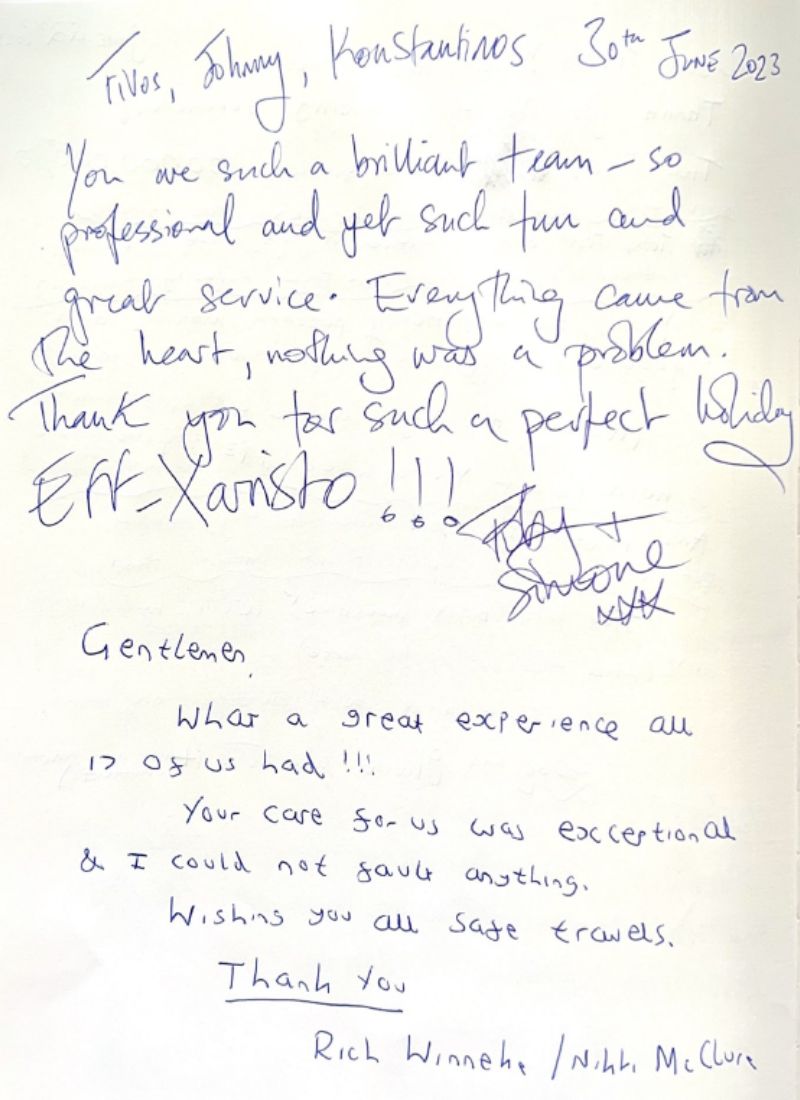 Tivos, Johnny, Konstantinos 30th JUNE 2023
You are such a brilliant team - so
professional and yet such fun and
great service. Everything came from
the heart, nothing was a problem.
Thank you for such a perfect holiday
Eff-Xaristo !!!
+
Simone
xxx
Gentlemen,
What a great experience all
17 of us had !!!
Your care for us was excceptional
& I could not fault anything.
Wishing you all safe travels.
Thank You
Rich Winneke / Nikki McClure